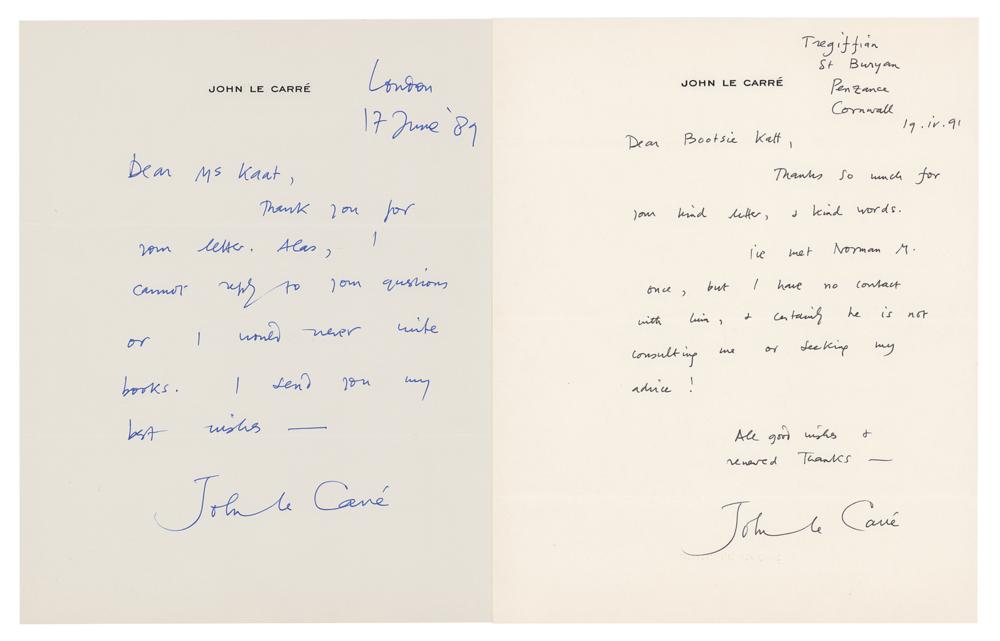 JOHN LE CARRÉ
London
17 June '89
Dear Ms Kaat,
Thank you for
your letter. Alas, I
cannot reply to your questions
or I would never write
books. I send you my
best wishes —
John le Carré
Tregiffian
St Buryan
Penzance
Cornwall
JOHN LE CARRÉ
19.iv.91
Dear Bootsie Katt,
Thanks so much for
your kind letter, & kind words.
I've met Norman M.
once, but I have no contact
with him, & certainly he is not
consulting me or seeking my
advice!
All good wishes &
renewed Thanks —
John le Carré